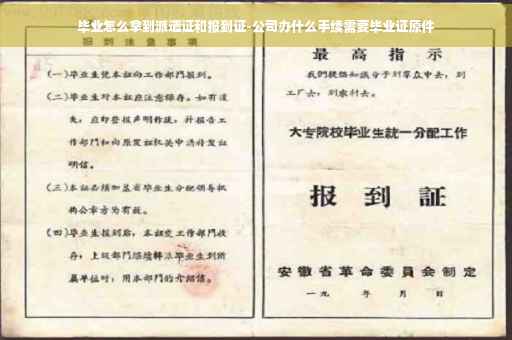 毕业怎么拿到派遣证和报到证-公司办什么手续需要毕业证原件
报到注意事项
(一)毕业生凭本证向工作部门报到。
(二)毕业生对本证应注意保存。如有遗
失，应即登报声明作废，并报告工
作部门和向原发证机关申请补发证
明信。
(三)本证必须加盖省毕业生分配领导机
构公章方为有效。
(四)毕业生报到后，本证交工作部门收
存；上级部门继续转派毕业生到所
属单位时，用本部门的介绍信。
最高指示
我们提倡知识分子到群众中去，到
工厂去，到农村去。
大专院校毕业生统一分配工作
报到证
安徽省革命委员会制定
一九 年 月 日